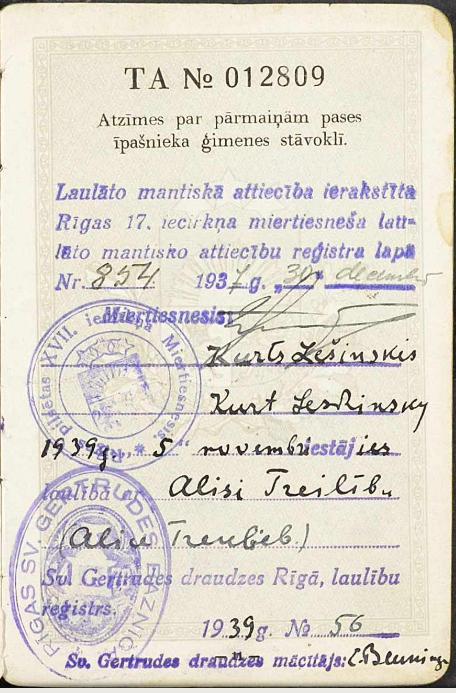 TA № 012809
Atzīmes par pārmaiņām pases
īpašnieka ģimenes stāvoklī.
Laulāto mantiskā attiecība ierakstīta
Rīgas 17. iecirkņa miertiesneša lau-
lāto mantisko attiecību reģistra lapā
Nr. 854 1937 g. „30" decembrī
Miertiesnesis:
Kurts Lešinskis
Kurt Leskinsky
1939g. „5" novembrī iestājies
laulībā ar Alisi Treilību
(Alice Treulieb.)
Sv. Ģertrudes draudzes Rīgā, laulību
reģistrs.
1939 g. № 56
Sv. Gertrudes draudzes mācītājs:
Rīgas pilsētas XVII. iecirkņa Miertiesnesis
RĪGAS SV. ĢERTRUDES BAZNĪC